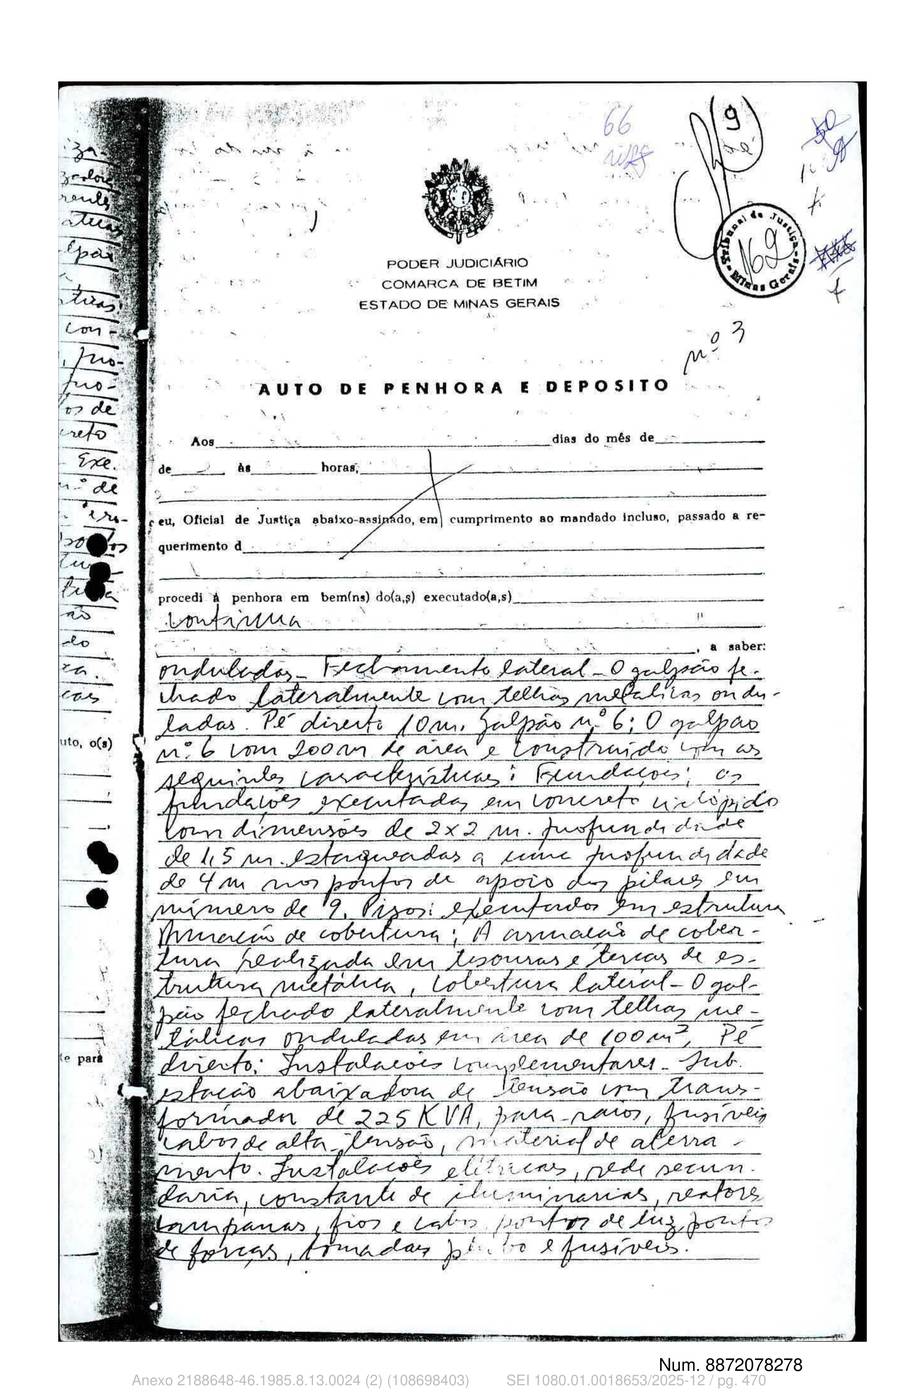 66
9
50
Tribunal de Justiça
Minas Gerais
169
PODER JUDICIÁRIO
COMARCA DE BETIM
ESTADO DE MINAS GERAIS
nº 3
AUTO DE PENHORA E DEPOSITO
Aos dias do mês de
de às horas,
eu, Oficial de Justiça abaixo-assinado, em cumprimento ao mandado incluso, passado a re-
querimento d
procedi á penhora em bem(ns) do(a,s) executado(a,s)
continua "
, a saber:
onduladas - Fechamento lateral - O galpão fe-
chado lateralmente com telhas metalicas ondu-
ladas. Pé direito 10m. Galpão nº 6: O galpão
nº 6 com 200m de área e construido com as
seguintes caracteristicas: Fundações: as
fundações executadas em concreto ciclópido
com dimensões de 2x2 m. profundidade
de 1,5 m. estaqueadas a uma profundidade
de 4 m nos pontos de apoio dos pilares em
número de 9. Pisos: executados em estrutura
Armação de cobertura: A armação de cober-
tura realizada em tesouras e terças de es-
trutura metálica, cobertura lateral - O gal-
pão fechado lateralmente com telhas me-
tálicas onduladas em área de 100m², Pé
direito: Instalações complementares - Sub
estação abaixadora de tensão com trans-
formador de 225 KVA, para-raios, fusíveis
cabos de alta-tensão, material de aterra-
mento. Instalações elétricas, rede secun-
daria, constante de iluminarias, reatores
campanas, fios e cabos, pontos de luz, pontos
de forças, tomadas e fusíveis.
iza
reuls
lpão
ticas
con-
, pro-
pro-
os de
creto
Exe.
nº de
ão
do
cas
uto, o(s)
te para
Num. 8872078278
Anexo 2188648-46.1985.8.13.0024 (2) (108698403) SEI 1080.01.0018653/2025-12 / pg. 470